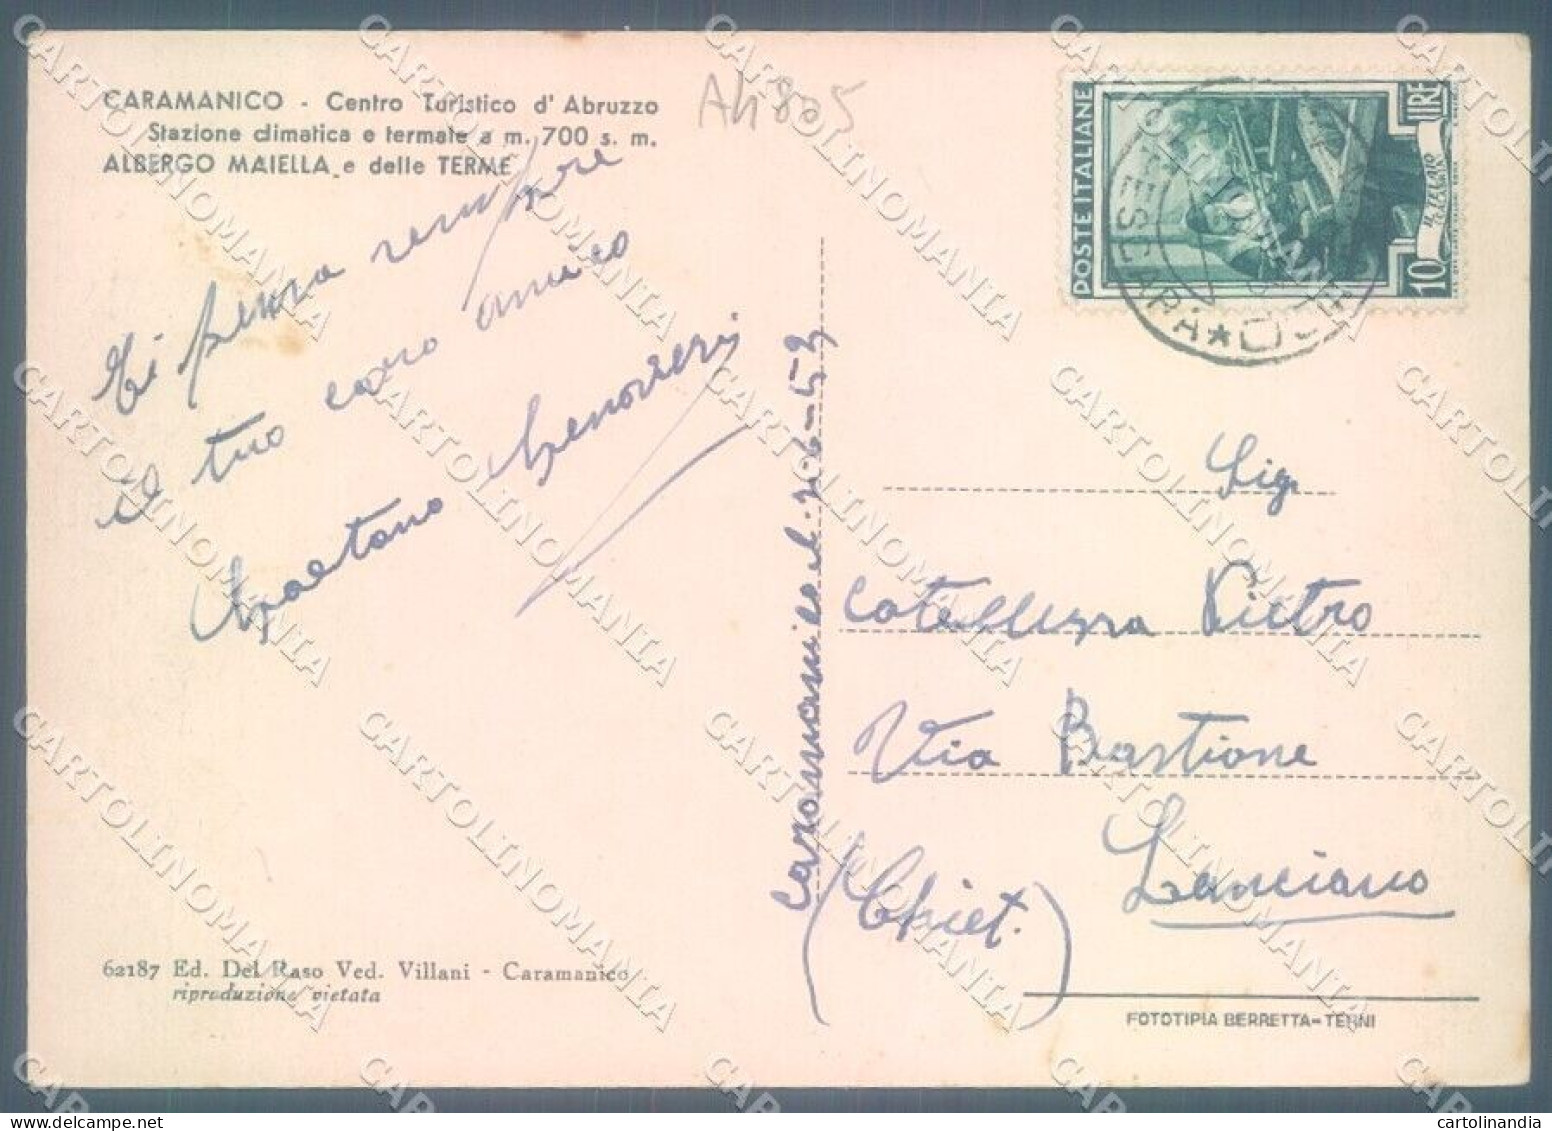 CARAMANICO - Centro Turistico d' Abruzzo
Stazione climatica e termale a m. 700 s. m.
ALBERGO MAIELLA e delle TERME
AH805
Ti pensa sempre
il tuo caro amico
Gaetano Genovesi
caramanico li. 2-6-53
POSTE ITALIANE
LIRE
10
PESCARA
Sig.
Cotellessa Pietro
Via Bastione
Lanciano
(Chiet.)
62187 Ed. Del Raso Ved. Villani - Caramanico
riproduzione vietata
FOTOTIPIA BERRETTA-TERNI
CARTOLINOMANIA
cartolinandia